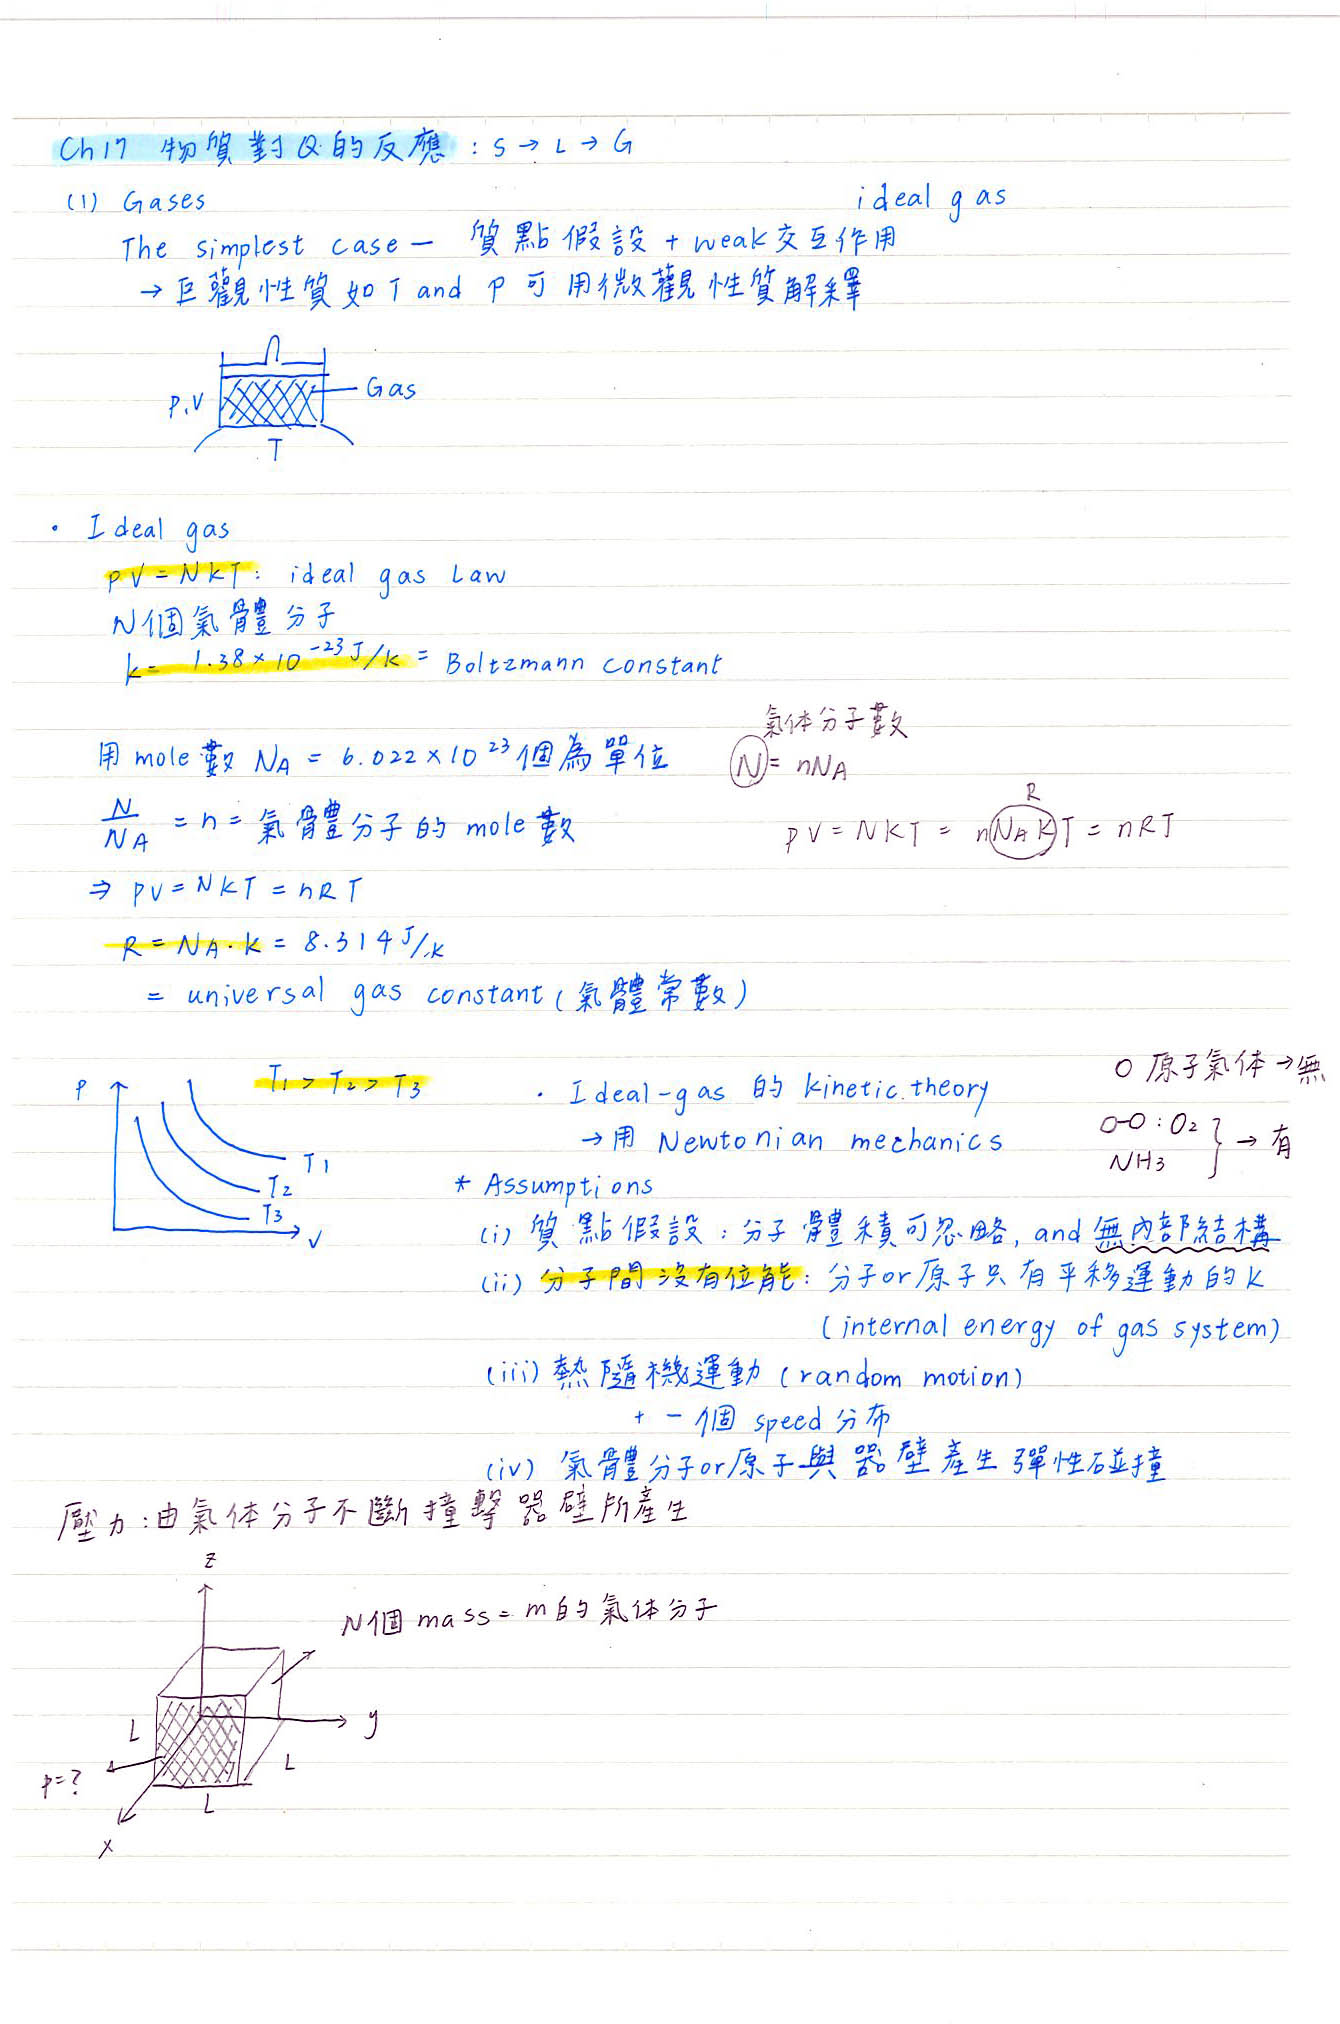 Ch17 物質對Q的反應 : S → L → G
(1) Gases
ideal gas
The simplest case — 質點假設 + weak交互作用
→ 巨觀性質如 T and P 可用微觀性質解釋
P,V
Gas
T
• Ideal gas
PV = NkT : ideal gas Law
N個氣體分子
k = 1.38 × 10⁻²³ J/k = Boltzmann constant
用 mole 數 NA = 6.022 × 10²³ 個為單位
氣体分子數
N = nNA
N/NA = n = 氣體分子的 mole 數
R
PV = NKT = nNAKT = nRT
⇒ PV = NKT = nRT
R = NA·k = 8.314 J/k
= universal gas constant (氣體常數)
P
T1 > T2 > T3
T1
T2
T3
V
• Ideal-gas 的 kinetic theory
→ 用 Newtonian mechanics
O 原子氣体 → 無
O-O : O2
NH3
} → 有
* Assumptions
(i) 質點假設 : 分子體積可忽略, and 無內部結構
(ii) 分子間沒有位能 : 分子or原子只有平移運動的K
(internal energy of gas system)
(iii) 熱隨機運動 (random motion)
+ 一個 speed 分布
(iv) 氣體分子or原子與器壁產生彈性碰撞
壓力 : 由氣体分子不斷撞擊器壁所產生
z
N個 mass = m 的氣体分子
y
L
L
P=?
L
x